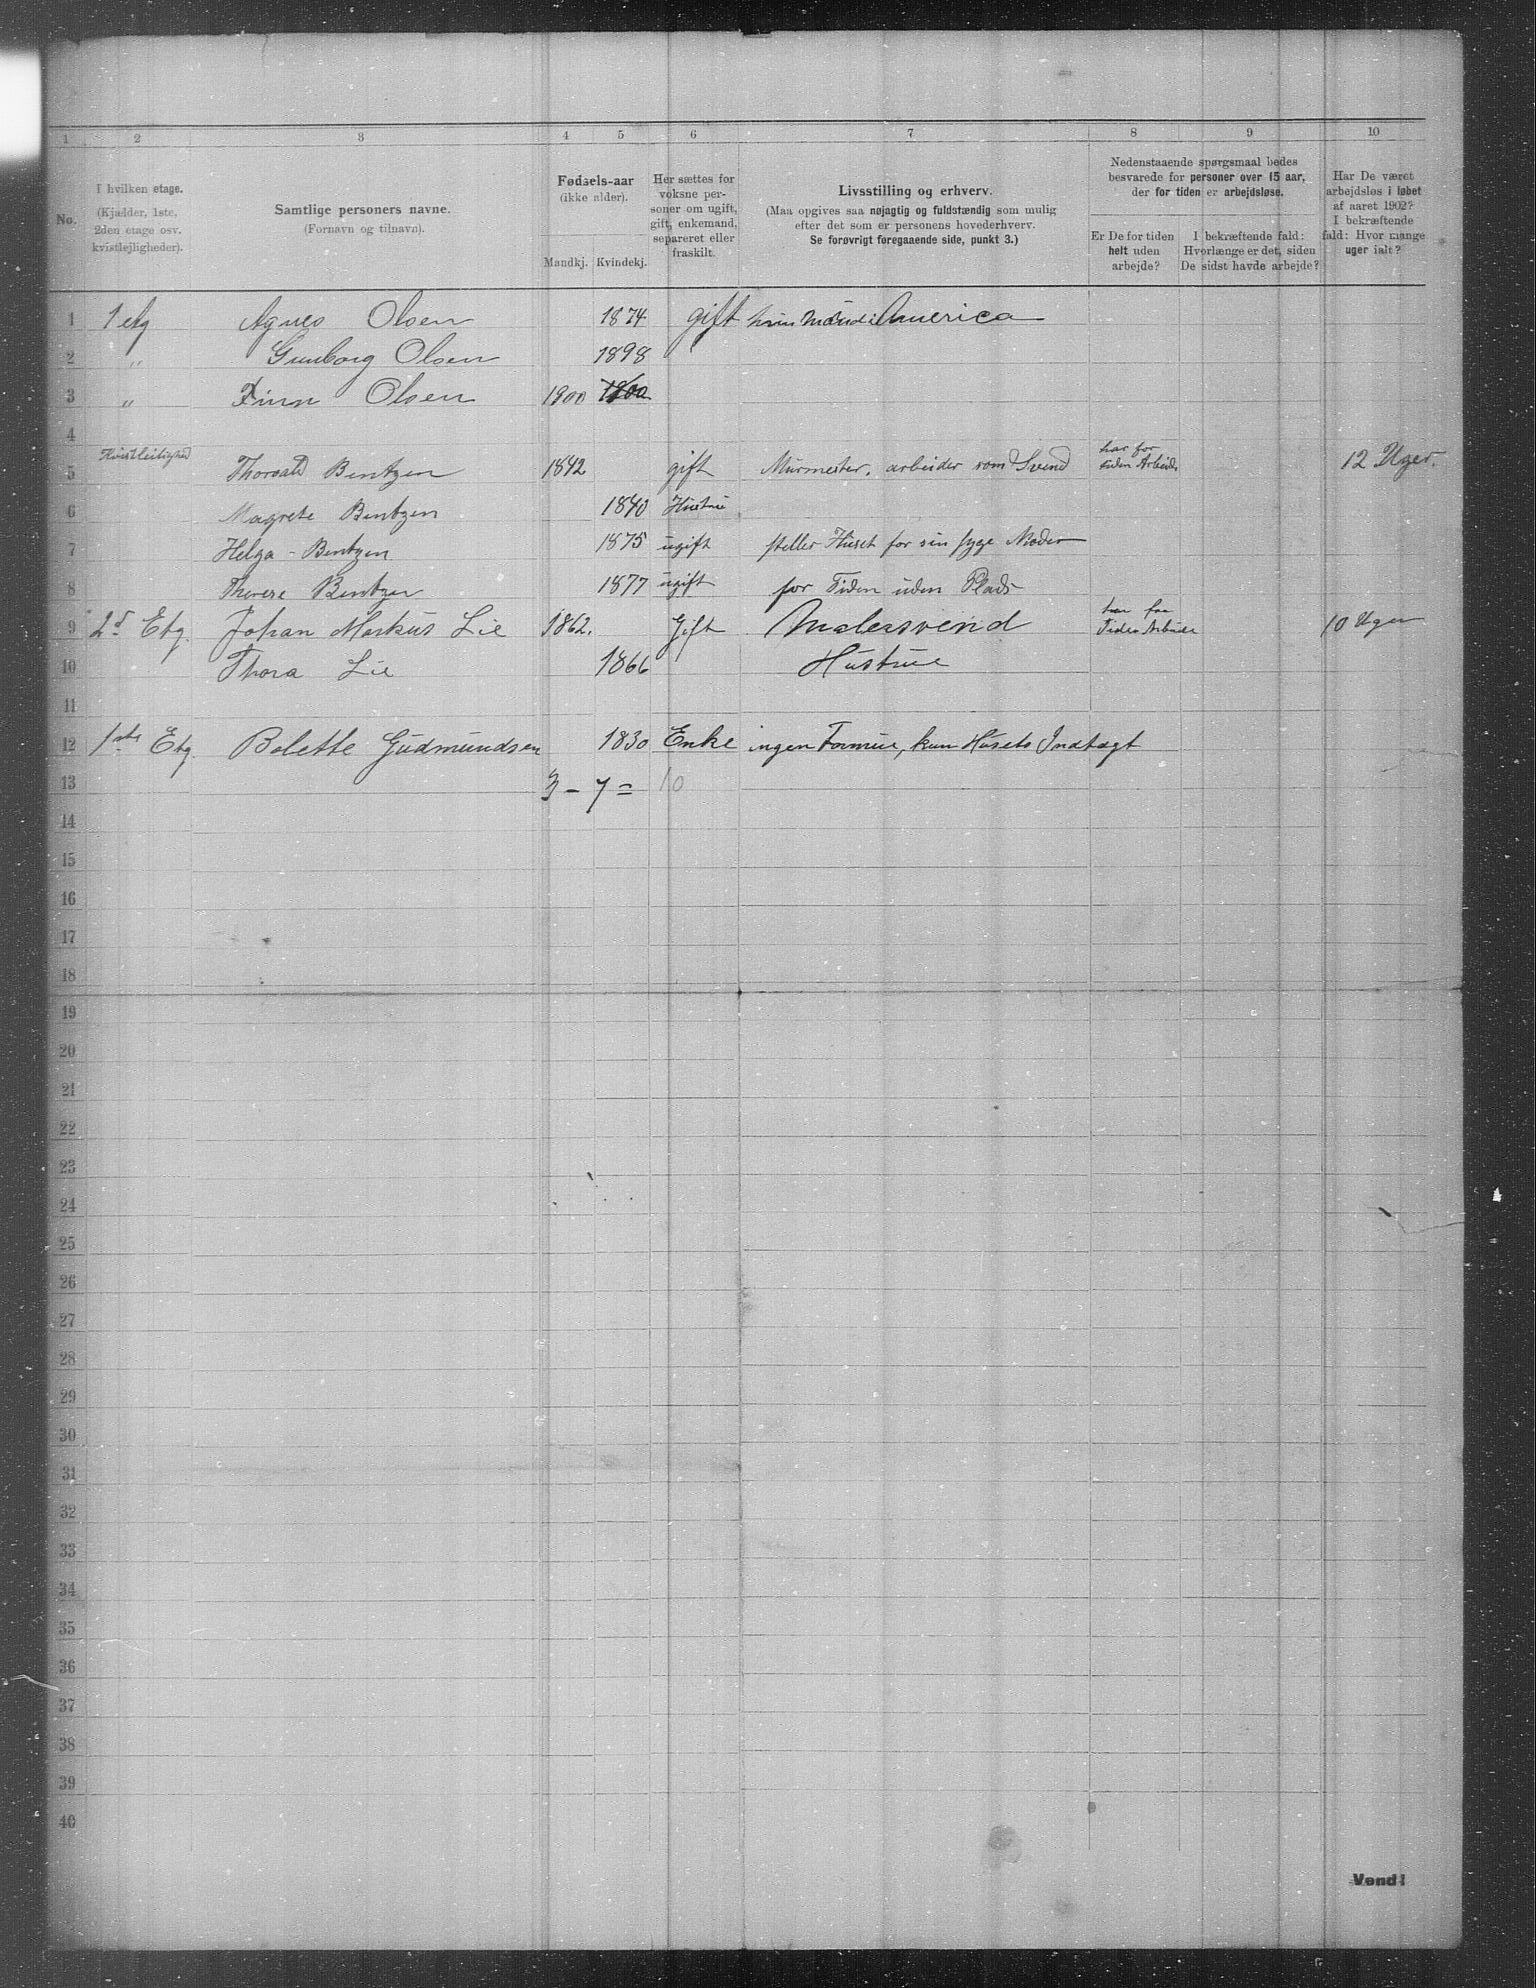 1 2 3 4 5 6 7 8 9 10
No.
I hvilken etage.
(Kjælder, 1ste,
2den etage osv.
kvistlejligheder).
Samtlige personers navne.
(Fornavn og tilnavn).
Fødsels-aar
(ikke alder).
Mandkj. Kvindekj.
Her sættes for
voksne per-
soner om ugift,
gift, enkemand,
separeret eller
fraskilt.
Livsstilling og erhverv.
(Maa opgives saa nøjagtig og fuldstændig som mulig
efter det som er personens hovederhverv.
Se forøvrigt føregaaende side, punkt 3.)
Nedenstaaende spørgsmaal bedes
besvarede for personer over 15 aar,
der for tiden er arbejdsløse.
Er De for tiden
helt uden
arbejde?
I bekræftende fald:
Hvorlænge er det, siden
De sidst havde arbejde?
Har De været
arbejdsløs i løbet
af aaret 1902?
I bekræftende
fald: Hvor mange
uger ialt?
1 1 etg Agnes Olsen 1874 gift Mand i America
2 " Gunborg Olsen 1898
3 " Finn Olsen 1900 1900
4
5 Kvistleilighed Thorvald Bentzen 1842 gift Murmester, arbeider som Svend har for tiden Arbeide 12 Uger.
6 Magrete Bentzen 1840 Hustrue
7 Helga - Bentzen 1875 ugift steller Huset for sin syge Moder
8 Therese Bentzen 1877 ugift for Tiden uden Plads
9 2d Etg. Johan Markus Lie 1862. Gift Malersvend har for Tiden Arbeide 10 Uger
10 Thora Lie 1866 Hustrue
11
12 1ste Etg. Bolette Gudmundsen 1830 Enke ingen Formue, kun Husets Indtægt
13 3 - 7 = 10
14
15
16
17
18
19
20
21
22
23
24
25
26
27
28
29
30
31
32
33
34
35
36
37
38
39
40
Vend!